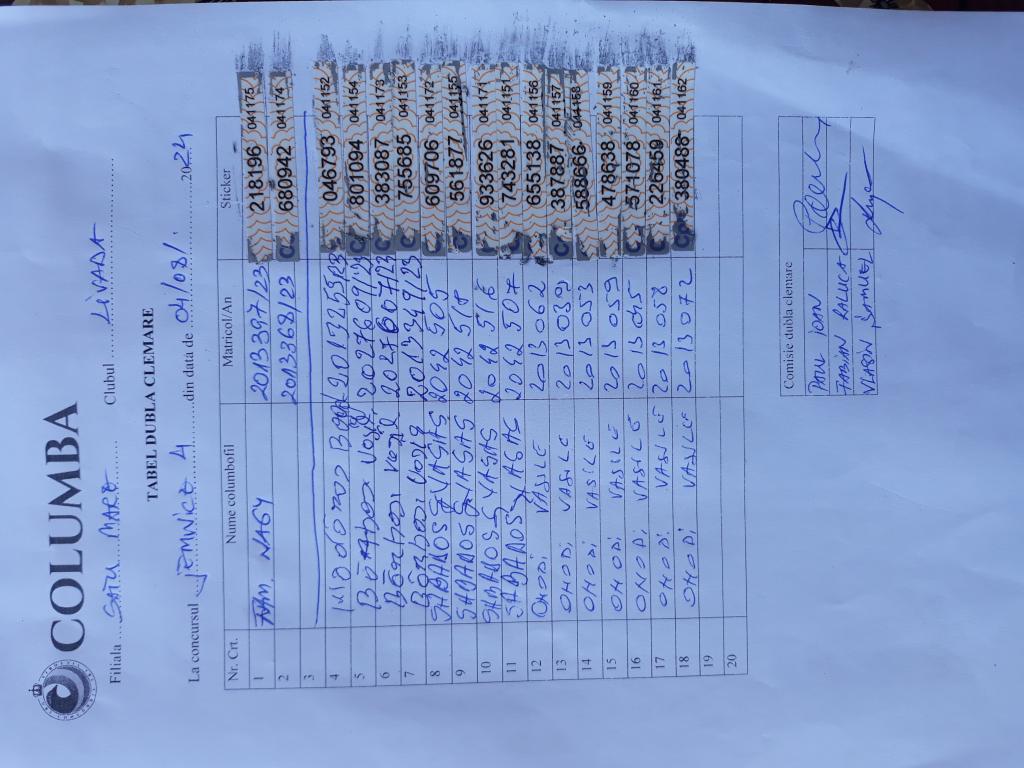 COLUMBA
Filiala SATU MARE Clubul LIVADA
TABEL DUBLA CLEMARE
La concursul JEMNICE 4 din data de 04/08/ 2024
Nr. Crt. Nume columbofil Matricol/An Sticker
1 FAM. NAGY 2013397/23 218196 041175
2 2013368/23 680942 041174
3
4 2013253/23 046793 041152
5 801094 041154
6 383087 041173
7 2013419/23 755685 041153
8 2042 505 609706 041172
9 2042 518 561877 041155
10 933626 041171
11 2042 507 743281 041151
12 OHODI VASILE 2013062 655138 041156
13 OHODI VASILE 2013 039 387887 041157
14 OHODI VASILE 2013 053 041158
15 OHODI VASILE 2013 059 478638 041159
16 OHODI VASILE 2013 045 571078 041160
17 OHODI VASILE 2013 058 226459 041161
18 OHODI VASILE 2013 072 380488 041162
19
20
Comisie dubla clemare
PAUL IOAN
FABIAN RALUCA
SAMUEL